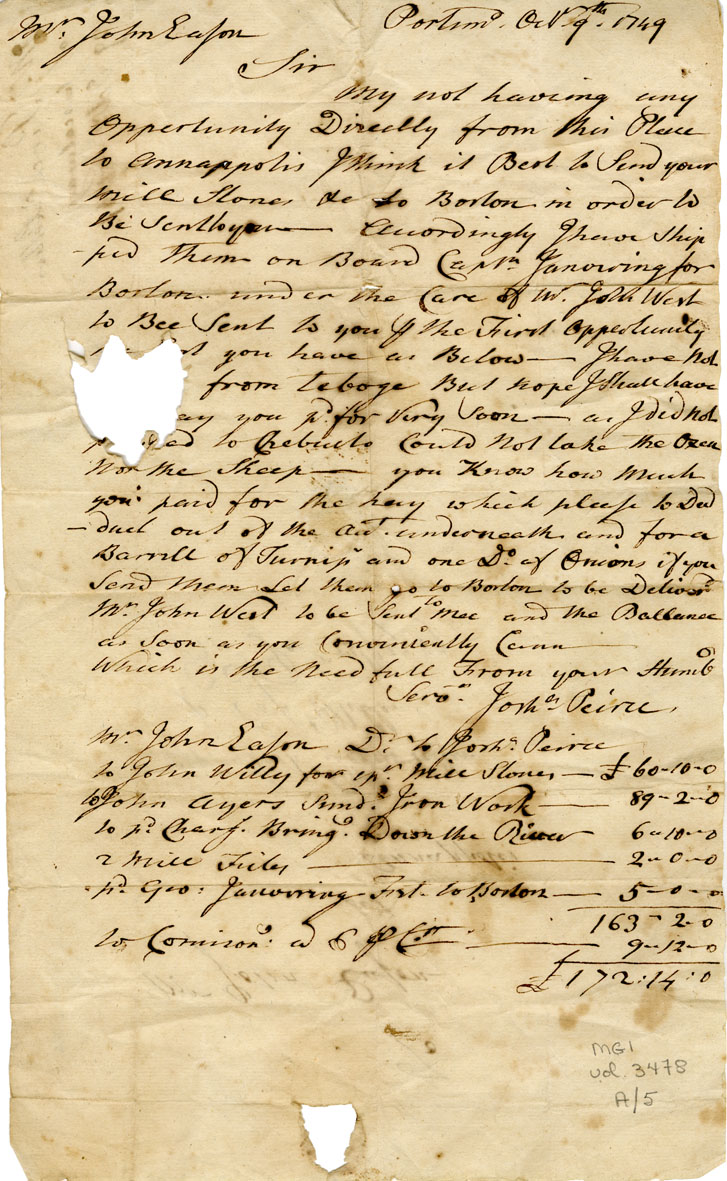 Mr. John Eason
Portsmo. Octr. 9th. 1749
Sir
My not having any
Opportunity Directly from this Place
to Annappolis I think it Best to Send your
Mill Stones &c to Boston in order to
Be Sent to you Accordingly I have Ship
-ped Them on Board Captn. Janvrin for
Boston under the Care of Mr. John West
to Bee Sent to you ⅌ the First Opportunity
you have as Below — I have Not
from Leboge But hope I Shall have
you pd. for Very Soon — as I did not
to Chebucto Could Not take the Oxen
Nor the Sheep — you Know how Much
you paid for the hay which please to Ded
-duct out of the Act. underneath and for a
Barrill of Turnips and one Do. of Onions if you
Send them Let them go to Boston to be Deliverd
Mr. John West to be Sent to Mee and the Ballance
as Soon as you Conveniently Cann
Which is the Need full From your Humb
Servt. Josha. Peirce
Mr. John Eason Dr. to Josha. Peirce
to John Willy for 1 pr. Mill Stones — £ 60-10-0
to John Ayers Sund. Iron Work — 89-2-0
to pd. Charg. Bring. Down the River 6-10-0
2 Mill Files — 2-0-0
pd. Geo: Janvrin Frt. to Boston — 5-0-0
163-2-0
to Comison. a 6 ⅌ Ct. — 9-12-0
£172:14:0
MG1
vol. 3478
A/5